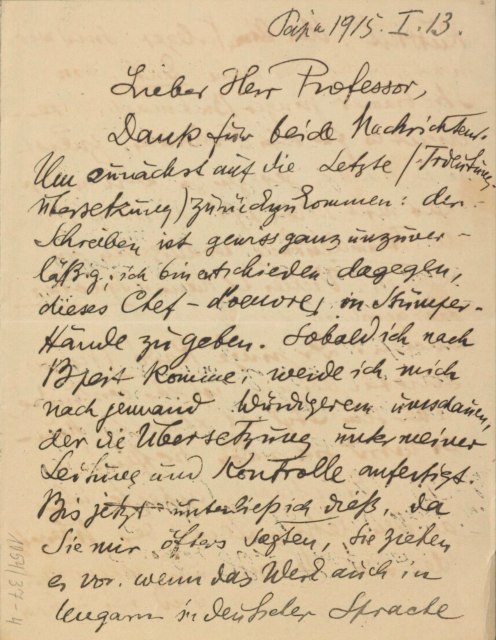 Pápa 1915. I. 13.
Lieber Herr Professor,
Dank für beide Nachrichten.
Um zunächst auf die Letzte (Trdeutung
übersetzung) zurückzukommen: der
Schreiben ist gewiss ganz unzuver-
läßig, ich bin entschieden dagegen,
dieses Chef-d'oeuvre, in Stümper-
Hände zu geben. Sobald ich nach
Bpest komme, werde ich mich
nach jemand würdigerem umschauen,
der die Übersetzung unter meiner
Leitung und Kontrolle anfertigt.
Bis jetzt unterließ ich dieß, da
Sie mir öfters sagten, Sie ziehen
es vor, wenn das Werk auch in
Ungarn in deutscher Sprache
1154/37-4